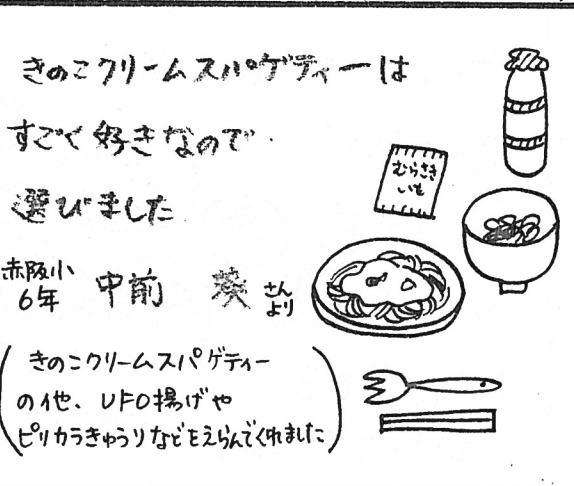 きのこクリームスパゲティーは
すごく好きなので.
選びました
むらさき
いも
赤阪小
6年 中前 葵 さん
より
きのこクリームスパゲティー
の他、UFO揚げや
ピリカラきゅうりなどをえらんでくれました